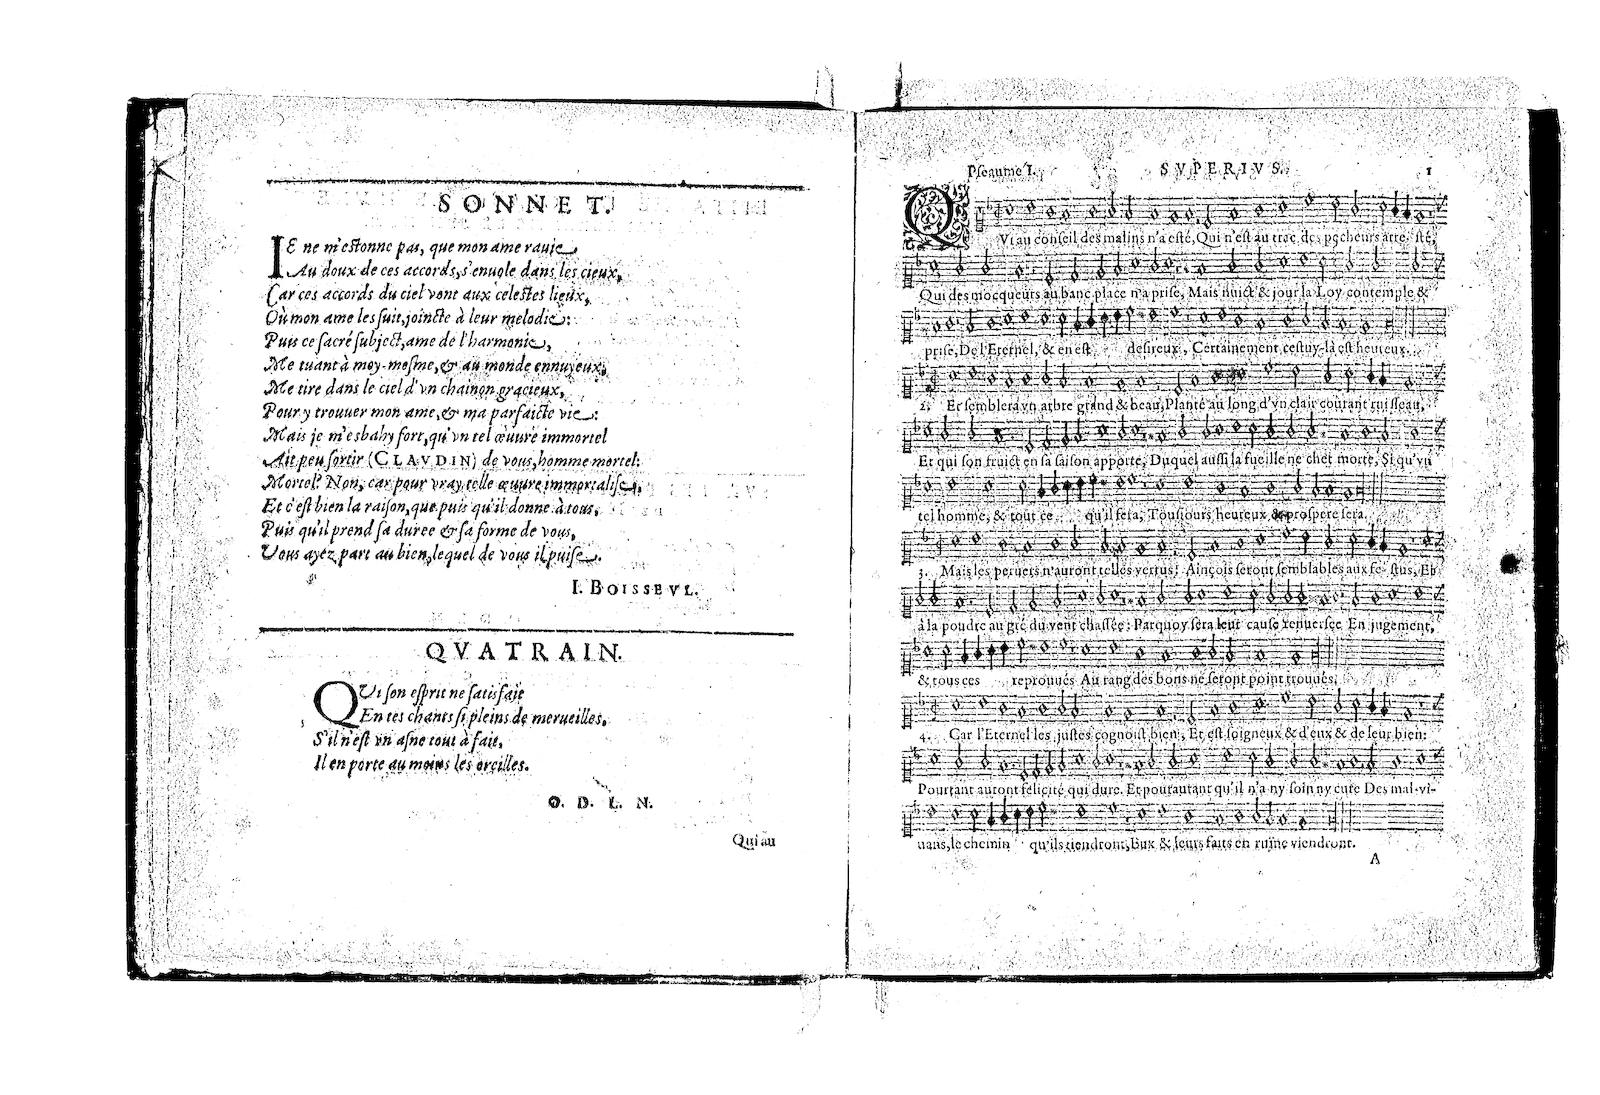 SONNET.
IE ne m'estonne pas, que mon ame rauie
Au doux de ces accords, s'enuole dans les cieux,
Car ces accords du ciel vont aux celestes lieux,
Où mon ame les suit, joincte à leur melodie:
Puis ce sacré subject, ame de l'harmonie,
Me tuant à moy-mesme, & au monde ennuyeux,
Me tire dans le ciel d'vn chainon gracieux,
Pour y trouuer mon ame, & ma parfaicte vie:
Mais je m'esbahy fort, qu'vn tel œuure immortel
Ait peu sortir (CLAVDIN) de vous, homme mortel:
Mortel? Non, car pour vray telle œuure immortalise,
Et c'est bien la raison, que puis qu'il donne à tous,
Puis qu'il prend sa duree & sa forme de vous,
Vous ayez part au bien, lequel de vous il puise.
I. BOISSEVL.
QVATRAIN.
QVi son esprit ne satisfait
En tes chants si pleins de merueilles,
S'il n'est vn asne tout à fait,
Il en porte au moins les oreilles.
O. D. L. N.
Qui au
Pseaume I. SVPERIVS. 1
QVi au conseil des malins n'a esté, Qui n'est au trac des pecheurs arre- sté,
Qui des mocqueurs au banc place n'a prise, Mais nuict & jour la Loy contemple &
prise, De l'Eternel, & en est desireux, Certainement cestuy-là est heureux.
2. Et semblera vn arbre grand & beau, Planté au long d'vn clair courant ruisseau,
Et qui son fruict en sa saison apporte, Duquel aussi la fueille ne chet morte, Si qu'vn
tel homme, & tout ce qu'il fera, Tousiours heureux & prospere sera.
3. Mais les peruers n'auront telles vertus; Ainçois seront semblables aux fe- stus, Et
à la poudre au gré du vent chassée: Parquoy sera leur cause renuersee En jugement,
& tous ces reprouués Au rang des bons ne seront point trouués.
4. Car l'Eternel les justes cognoist bien, Et est soigneux & d'eux & de leur bien:
Pourtant auront felicité qui dure. Et pourautant qu'il n'a ny soin ny cure Des mal-vi-
uans, le chemin qu'ils tiendront, Eux & leurs faits en ruine viendront.
A